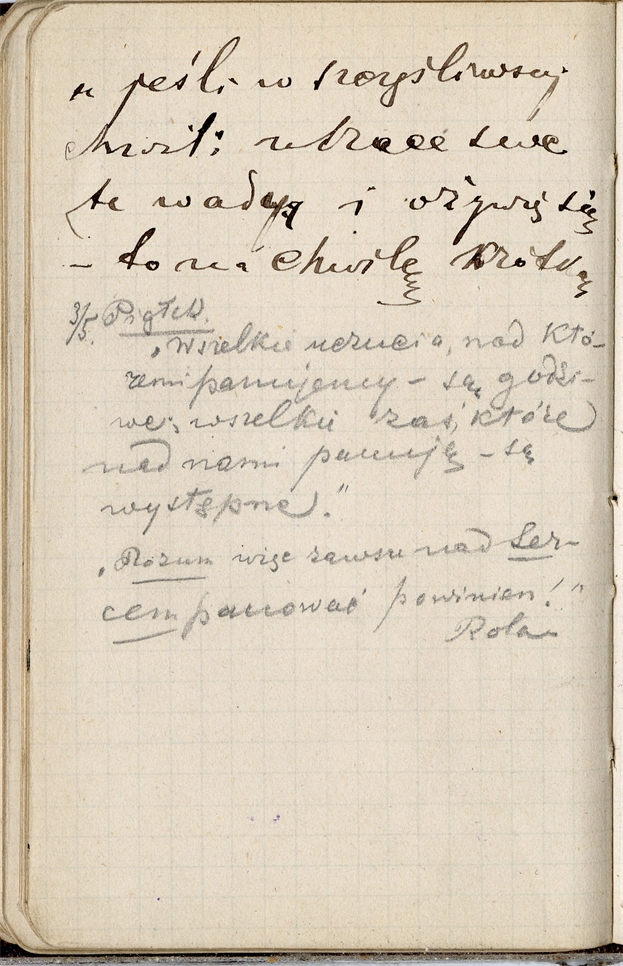 a jeśli w szczęśliwszej
chwili utracę swe
te wady i ożywię się
– to na chwilę krótką
3/5. Piątek.
„Wszelkie uczucia, nad któ-
remi panujemy – są godzi-
we; wszelkie zaś, które
nad nami panują – są
występne."
„Rozum więc zawsze nad Ser-
cem panować powinien!"